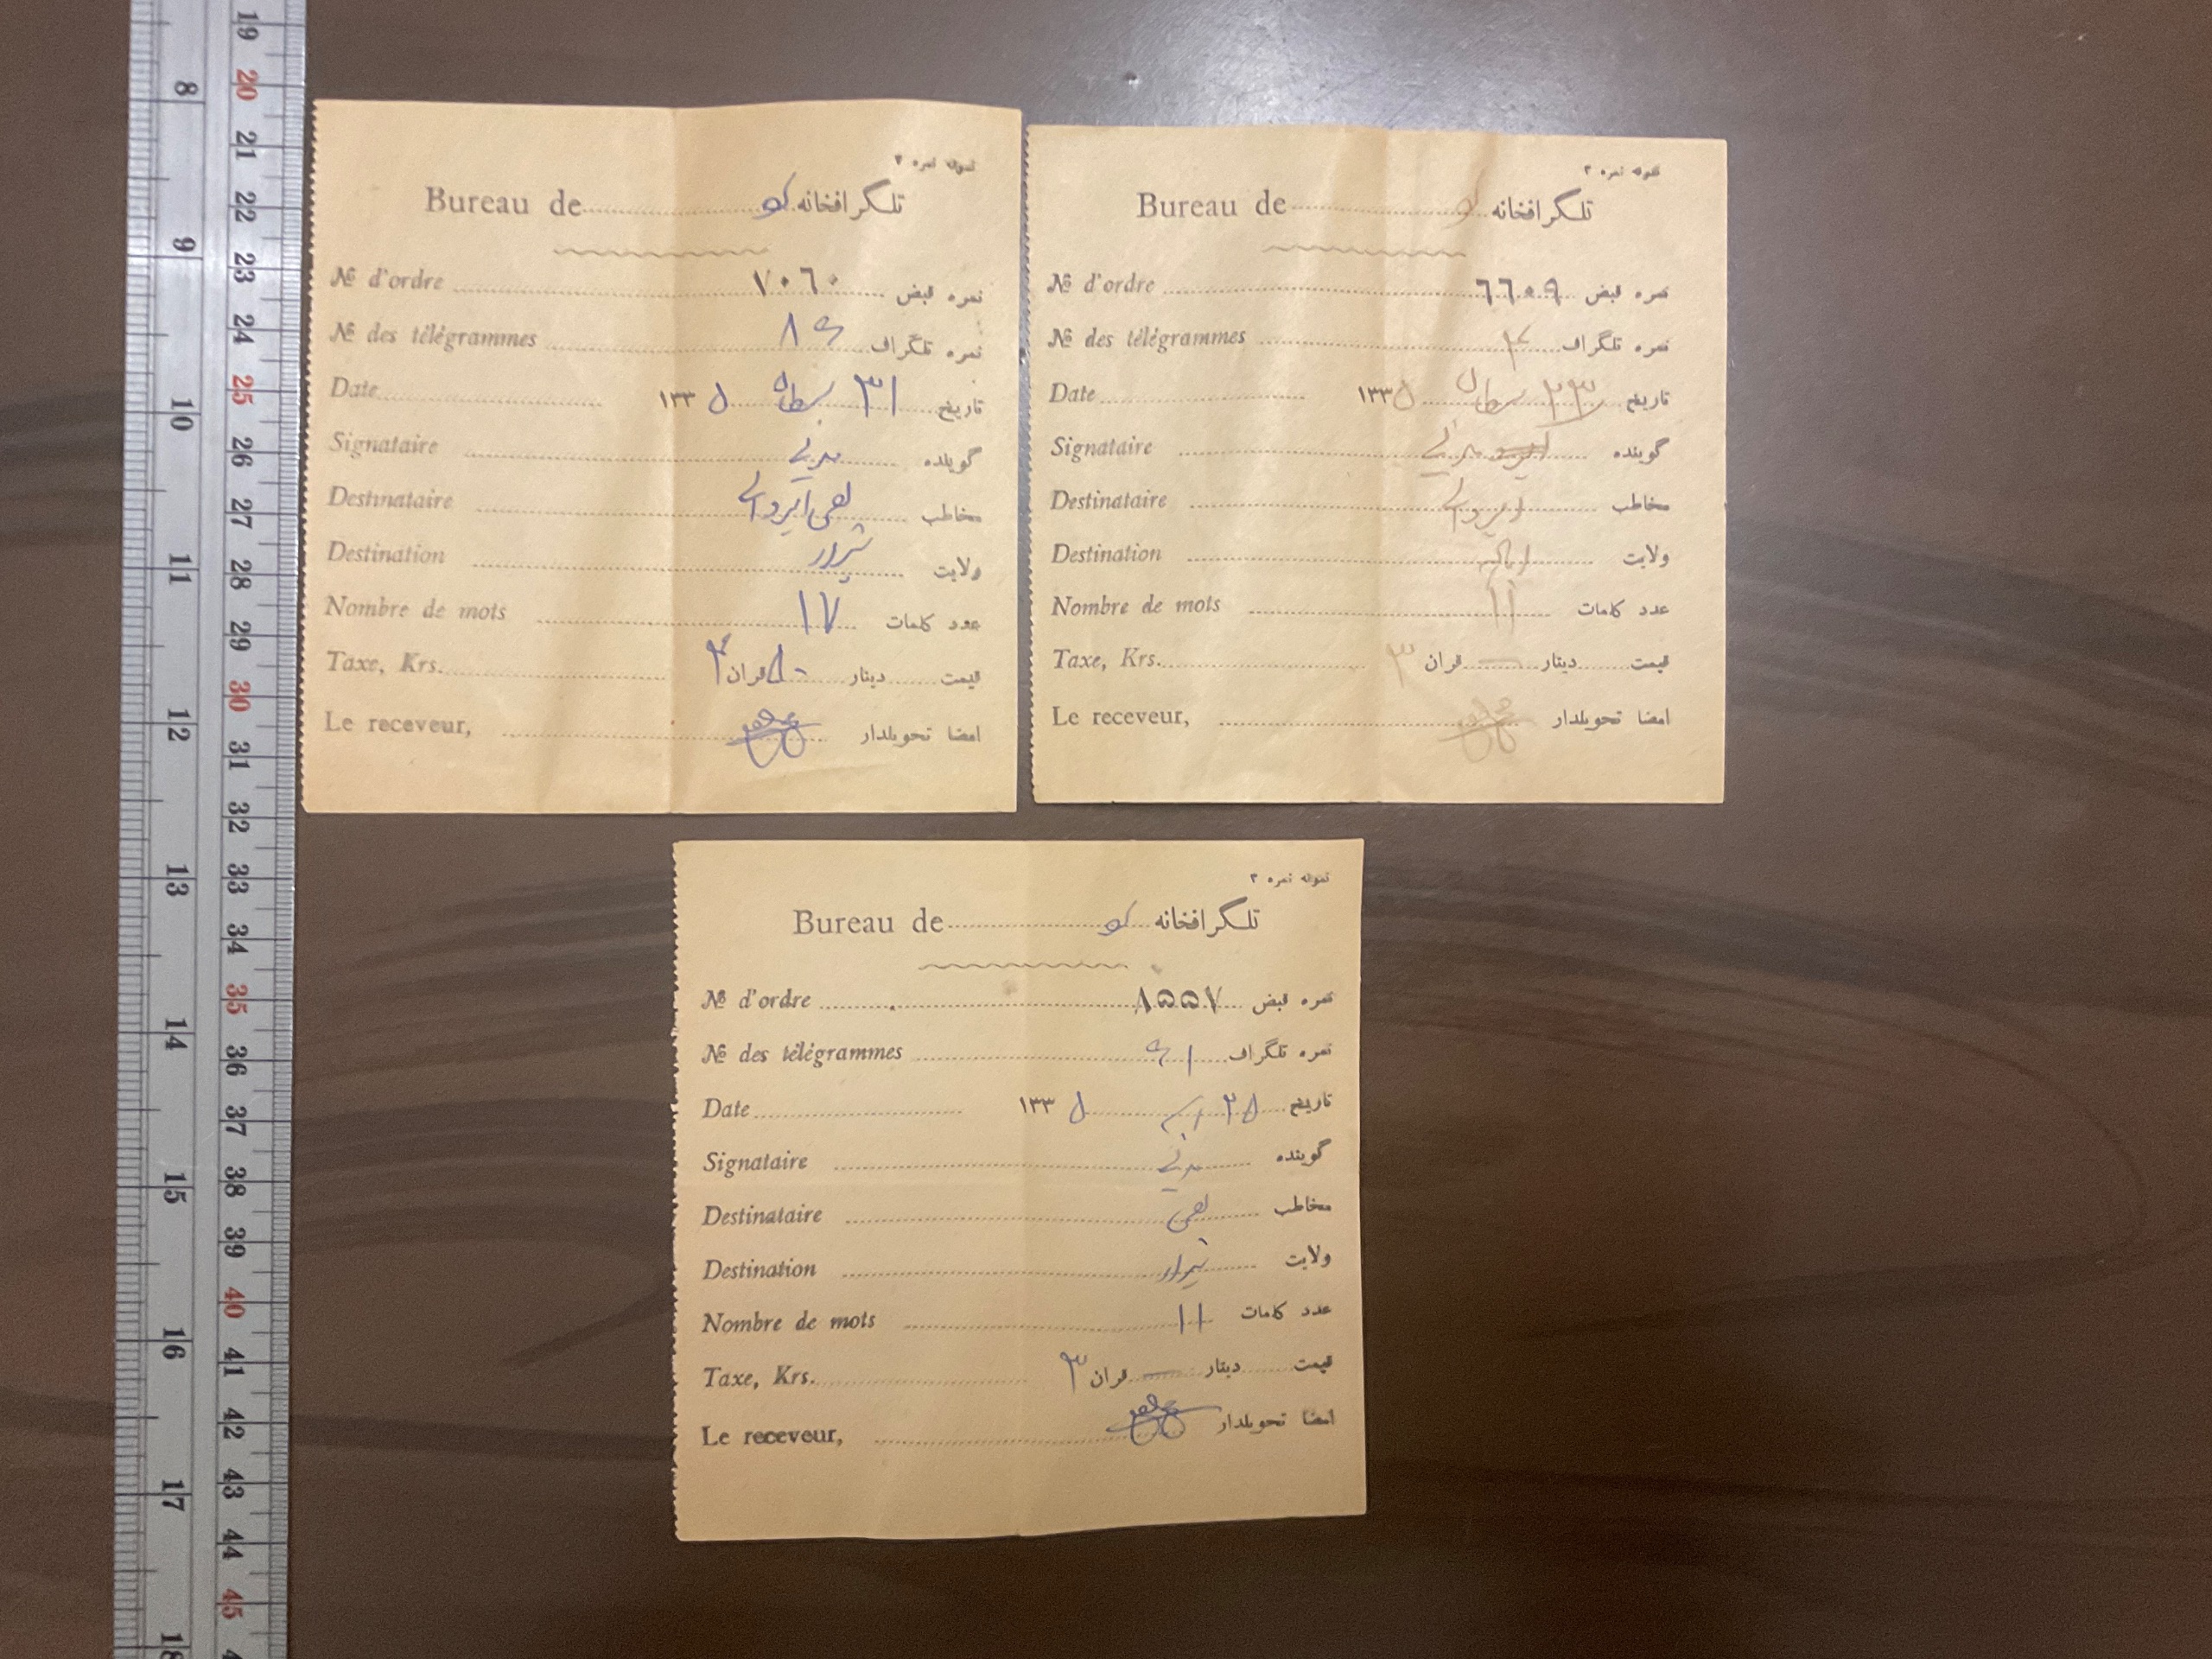 نمونه نمره ۲
Bureau de تلگرافخانه
№ d'ordre ٧٠٦٠ نمره قبض
№ des télégrammes ۸۹ نمره تلگراف
Date ۱۳۳۵ سرطان ۳۱ تاریخ
Signataire گوینده
Destinataire مخاطب
Destination شیراز ولایت
Nombre de mots ۱۷ عدد کلمات
Taxe, Krs. قران دینار قیمت
Le receveur, امضا تحویلدار
نمونه نمره ۲
Bureau de تلگرافخانه
№ d'ordre ٦٦٠٩ نمره قبض
№ des télégrammes نمره تلگراف
Date ۱۳۳۵ سرطان ۲۳ تاریخ
Signataire گوینده
Destinataire مخاطب
Destination ولایت
Nombre de mots ۱۱ عدد کلمات
Taxe, Krs. ۳ قران — دینار قیمت
Le receveur, امضا تحویلدار
نمونه نمره ۲
Bureau de تلگرافخانه
№ d'ordre ۸۵۵۷ نمره قبض
№ des télégrammes ۹۱ نمره تلگراف
Date ۱۳۳۵ ۲۵ تاریخ
Signataire گوینده
Destinataire مخاطب
Destination شیراز ولایت
Nombre de mots ۱۱ عدد کلمات
Taxe, Krs. ۳ قران — دینار قیمت
Le receveur, امضا تحویلدار
8
9
10
11
12
13
14
15
16
17
18
19
20
21
22
23
24
25
26
27
28
29
30
31
32
33
34
35
36
37
38
39
40
41
42
43
44
45